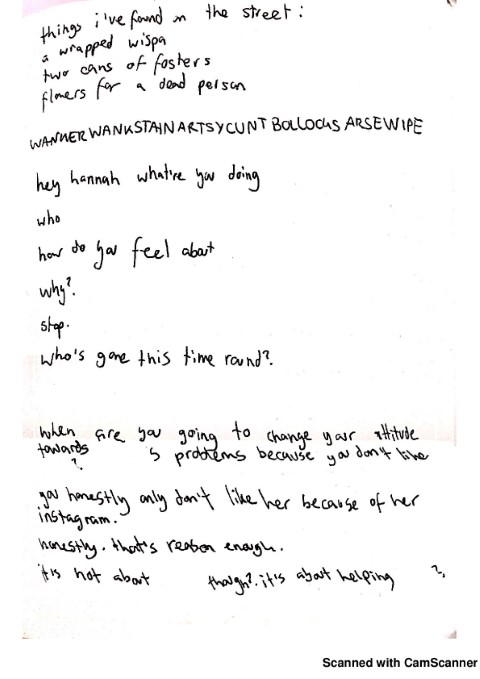 things i've found on the street:
a wrapped wispa
two cans of fosters
flowers for a dead person
WANKERWANKSTAINARTSYCUNT BOLLOCKS ARSEWIPE
hey hannah what're you doing
who
how do you feel about
why?.
stop.
who's gone this time round?.
when are you going to change your attitude
towards 's problems because you don't like
?.
you honestly only don't like her because of her
instagram.
honestly. that's reason enough.
it is not about though?. it's about helping ?.
Scanned with CamScanner